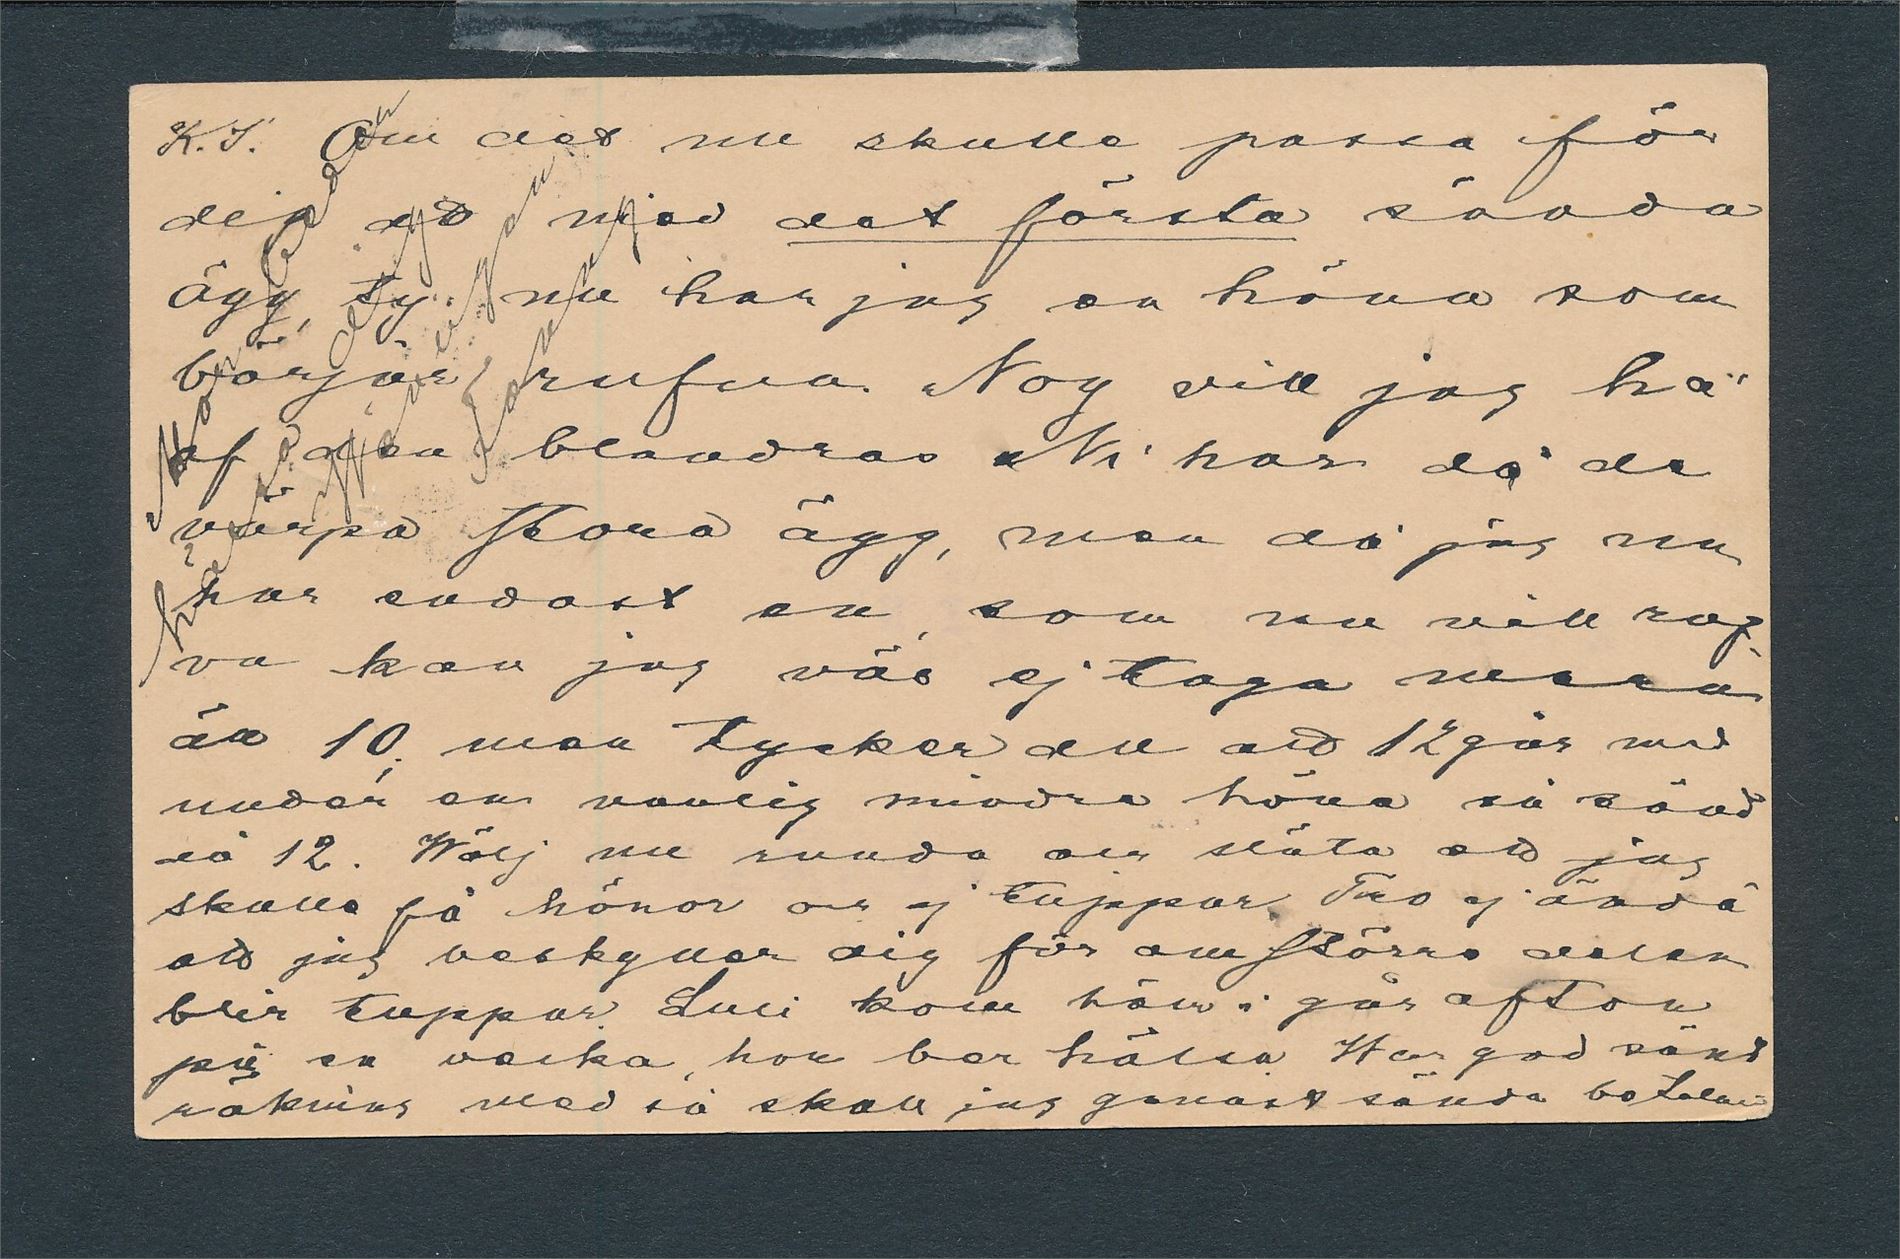 K. S. Om det nu skulle passa för
dig att med det första sända
ägg, ty nu har jag en höna som
börjar rufva. Nog vill jag ha
af den blandras Ni har då de
värpa stora ägg, men då jag nu
har endast en, som nu vill ruf-
va kan jag väl ej taga mera
än 10, men tycker du att 12 går med
under en vanlig mindre höna så sänd
då 12. Wälj nu runda och släta att jag
skulle få hönor och ej tuppar. Tro ej ändå
att jag beskyller dig för om större delen
blir tuppar. kom hem i går afton
på en vecka, hon ber hälsa. War god sänd
räkning med så skall jag genast sända betaln